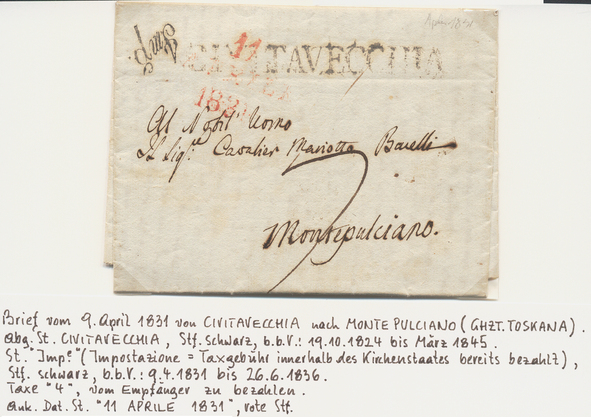 Aprile 1831
Imp.
CIVITAVECCHIA
11
APRILE
1831
Al Nobil Uomo
Il Sig.r Cavalier Mariotto Bavelli
Montepulciano.
Brief vom 9. April 1831 von CIVITAVECCHIA nach MONTEPULCIANO (GHZT. TOSKANA).
Abg. St. CIVITAVECCHIA, Stf. schwarz, b.b.V.: 19.10.1824 bis März 1845.
St. "Imp.e" (Impostazione = Taxgebühr innerhalb des Kirchenstaates bereits bezahlt),
Stf. schwarz, b.b.V.: 9.4.1831 bis 26.6.1836.
Taxe "4", vom Empfänger zu bezahlen.
Ank. Dat. St. "11 APRILE 1831", rote Stf.